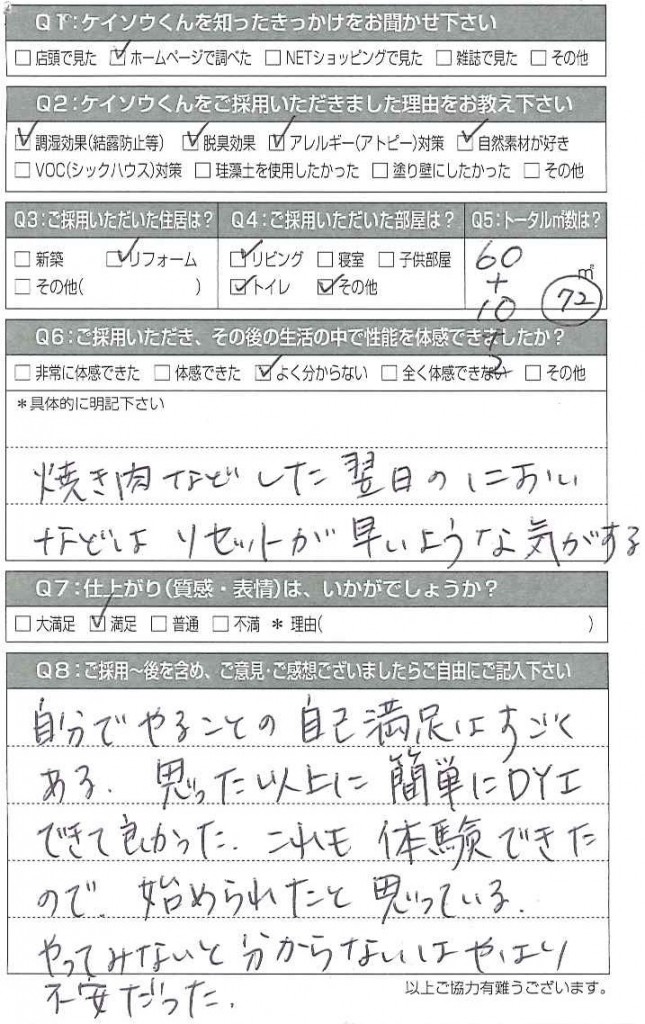 Q1:ケイソウくんを知ったきっかけをお聞かせ下さい
□店頭で見た ☑ホームページで調べた □NETショッピングで見た □雑誌で見た □その他
Q2:ケイソウくんをご採用いただきました理由をお教え下さい
☑調湿効果(結露防止等) ☑脱臭効果 ☑アレルギー(アトピー)対策 ☑自然素材が好き
□VOC(シックハウス)対策 □珪藻土を使用したかった □塗り壁にしたかった □その他
Q3:ご採用いただいた住居は?
□新築 ☑リフォーム
□その他( )
Q4:ご採用いただいた部屋は?
☑リビング □寝室 □子供部屋
☑トイレ ☑その他
Q5:トータル㎡数は?
60
+
10
+
2
㎡
72
Q6:ご採用いただき、その後の生活の中で性能を体感できましたか?
□非常に体感できた □体感できた ☑よく分からない □全く体感できない □その他
*具体的に明記下さい
焼き肉などした翌日のにおい
などは リセットが早いような気がする
Q7:仕上がり(質感・表情)は、いかがでしょうか?
□大満足 ☑満足 □普通 □不満 *理由( )
Q8:ご採用〜後を含め、ご意見・ご感想ございましたらご自由にご記入下さい
自分でやることの自己満足はすごく
ある. 思った以上に簡単にDYI
できて良かった. これも体験できた
ので. 始められたと思っている.
やってみないと分からないはやはり
不安だった.
以上ご協力有難うございます。